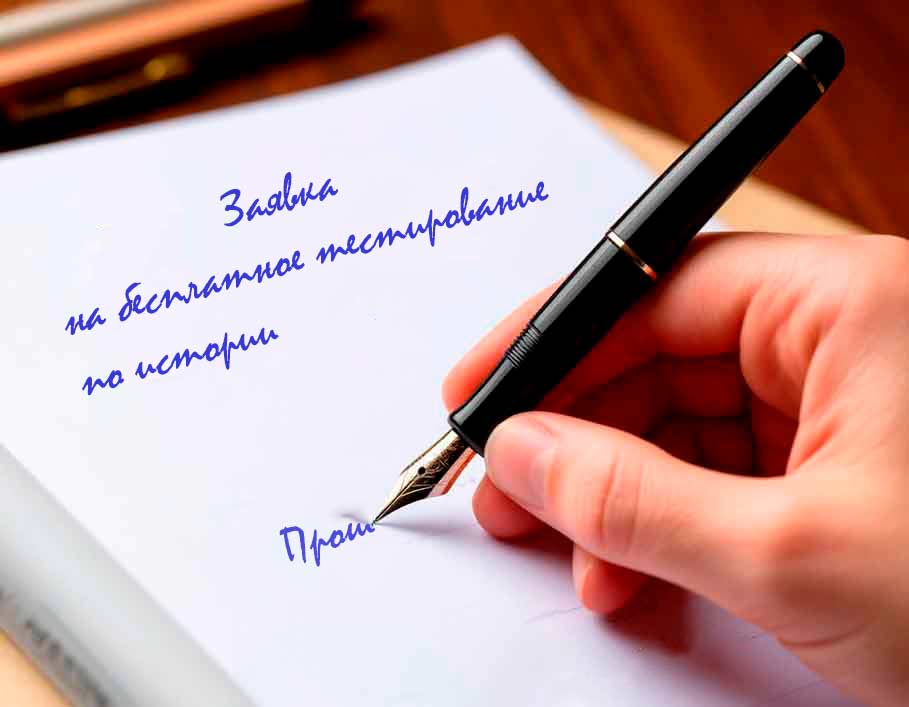 Заявка
на бесплатное тестирование
по истории
Прош